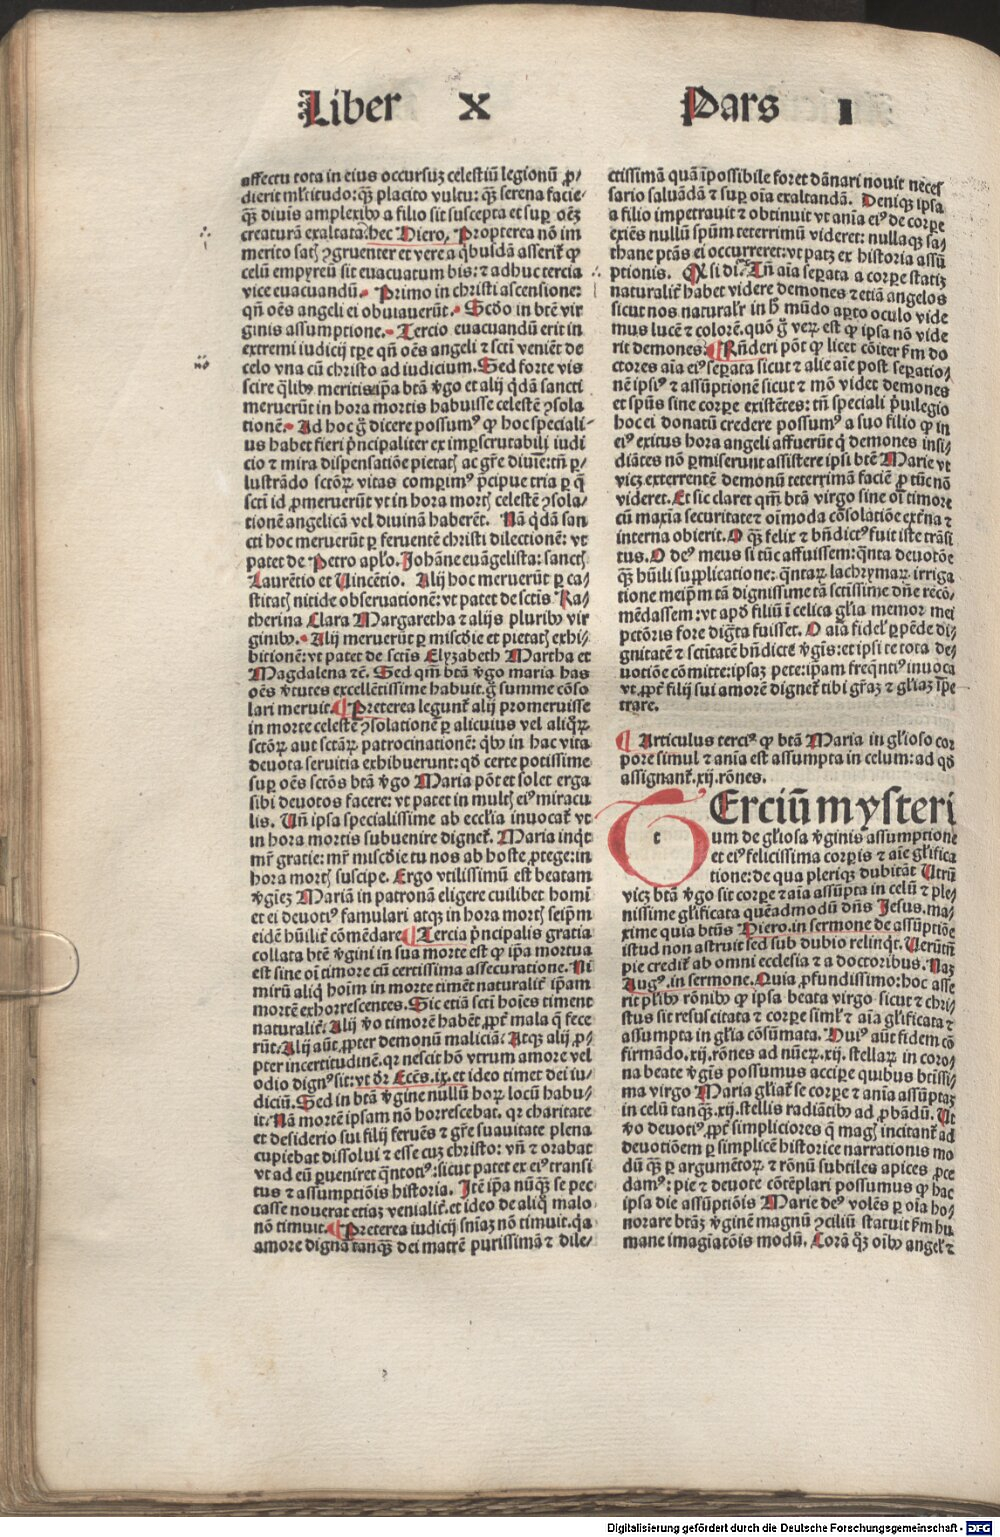 Liber X Pars I
affectu tota in eius occursuȝ celestiū legionū ꝓ/
dierit mĺtitudo: qȝ̄ placito vultu: qȝ̄ serena facie⸗
qȝ̄ diuis amplexibꝰ a filio sit suscepta et suꝑ oēȝ
creaturā exaltata. hec Hiero. Propterea nō im
merito satꝭ ꝯgruenter et vere a qͥbusdā asserit̄ ꝙ
celū empyreū sit euacuatum bis: ⁊ adhuc tercia
vice euacuandū. Primo in christi ascensione:
qn̄ oēs angeli ei obuiauerūt. Scd̄o in btē vir
ginis assumptione. Tercio euacuandū erit in
extremi iudicij tꝑe qn̄ oēs angeli ⁊ scti veniēt de
celo vna cū christo ad iudicium. Sed forte vis
scire qͥlibꝰ meritis ip̄a btā v̄go et alij qͥdā sancti
meruerūt in hora mortis habuisse celestē ꝯsola
tionē. Ad hoc g̃ dicere possumꝰ ꝙ hoc speciali⸗
us habet fieri p̄ncipaliter ex imꝑscrutabili iudi
cio ⁊ mira dispensatiōe pietatꝭ ac gr̄e diuie: tn̄ ꝑ/
lustrādo sctōꝝ vitas comꝑimꝰ p̄cipue tria ꝑ q̄
scti id ꝓmeruerūt vt in hora mortꝭ celestē ꝯsola⸗
tionē angelicā vel diuinā haberēt. Nā qͥdā san
cti hoc meruerūt ꝑ feruentē christi dilectionē: vt
patet de Petro apl̄o. Johāne euāgelista: sanctꝭ
Laurētio et Uincētio. Alij hoc meruerūt ꝑ ca/
stitatꝭ nitide obseruationē: vt patet de sctis Ka⸗
therina Clara Margaretha ⁊ alijs pluribꝰ vir
ginibꝰ. Alij meruerūt ꝑ misc̄die et pietatꝭ exhi/
bitionē: vt patet de sctis Elyzabeth Martha et
Magdalena ⁊c̄. Sed qm̄ btā v̄go maria has
oēs v̄tutes excellētissime habuit. g̃ summe cōso
lari meruit. Preterea legunt̄ alij promeruisse
in morte celestē ꝯsolationē ꝑ alicuius vel aliqͦꝝ
sctōꝝ aut sctāꝝ patrocinationē: qͥbꝰ in hac vita
deuota seruitia exhibuerunt: qd̄ certe potissime
suꝑ oēs sctōs btā v̄go Maria pōt et solet erga
sibi deuotos facere: vt patet in multꝭ eiꝰ miracu
lis. Un̄ ipsa specialissime ab ecclīa inuocat̄ vt
in hora mortis subuenire dignet̄. Maria inqͥt
mr̄ gratie: mr̄ misc̄die tu nos ab hoste ꝓtege: in
hora mortꝭ suscipe. Ergo vtilissimū est beatam
v̄gieȝ Mariā in patronā eligere cuilibet homi
et ei deuotiꝰ famulari atqȝ in hora mortꝭ seip̄m
eidē hūilit̄ cōmēdare. Tercia p̄ncipalis gratia
collata btē v̄gini in sua morte est ꝙ ip̄a mortua
est sine oī timore cū certissima assecuratione. Ni
mirū aliqͥ hoīm in morte timēt naturalit̄ ip̄am
mortē exhorrescentes. Sic etiā scti hoīes timent
naturalit̄. Alij v̄o timorē habēt ꝓpt̄ mala q̄ fece
rūt. Alij aūt ꝓpter demonū maliciā. Atqȝ alij ꝓ/
pter incertitudinē. qꝛ nescit hō vtrum amore vel
odio dignꝰ sit: vt dr̄ Eccēs. ix. et ideo timet dei iu/
diciū. Sed in btā v̄gine nullū hoꝝ locū habu/
it. Nā mortē ipsam nō horrescebat. qꝛ charitate
et desiderio sui filij feruēs ⁊ gr̄e suauitate plena
cupiebat dissolui ⁊ esse cuȝ christo: vn̄ ⁊ orabat
vt ad eū ꝑueniret qͣntotiꝰ: sicut patet ex eiꝰ transi
tus ⁊ assumptiōis historia. Itē ip̄a nūqȝ̄ se pec
casse nouerat etiaȝ venialit̄. et ideo de aliqͦ malo
nō timuit. Preterea iudicij sn̄iaȝ nō timuit. qꝛ
amore dignā tanqȝ̄ dei matrē purissimā ⁊ dile⸗
ctissimā quā īpossibile foret dānari nouit neces
sario saluādā ⁊ suꝑ oīa exaltandā. Deniqȝ ipsa
a filio impetrauit ⁊ obtinuit vt anīa eiꝰ de corꝑe
exiēs nullū spūm teterrimū videret: nullaqȝ sa/
thane ptās ei occurreret: vt patȝ ex historia assū
ptionis. Qͥ si dī. Tn̄ aīa seꝑata a corꝑe statiȝ
naturalit̄ habet videre demones ⁊ etiā angelos
sicut nos naturalr̄ in h̄ mūdo aꝑto oculo vide
mus lucē ⁊ colorē. quō g̃ veꝝ est ꝙ ipsa nō vide
rit demones. Rn̄deri pōt ꝙ licet cōiter ẜm do
ctores aīa eiꝰ seꝑata sicut ⁊ alie aīe post seꝑatio⸗
nē ipsiꝰ ⁊ assūptionē sicut ⁊ mō videt demones
et spūs sine corꝑe existētes: tn̄ speciali p̄uilegio
hoc ei donatū credere possumꝰ a suo filio ꝙ in
eiꝰ exitus hora angeli affuerūt qͥ demones insi/
diātes nō ꝑmiserunt assistere ipsi btē Marie vt
viciȝ exterrentē demonū teterrimā faciē ꝓ tūc nō
videret. Et sic claret qm̄ btā virgo sine oī timore
cū maxīa securitate ⁊ oīmoda cōsolatiōe extīna ⁊
interna obierit. O qȝ̄ felix ⁊ bn̄dictꝰ fuit iste trāsi
tus. O deꝰ meus si tūc affuissem: qͣnta deuotōe
qȝ̄ hūili supplicatione: qͣntaꝝ lachrymaꝝ irriga
tione meip̄m tā dignissime tā sctissime dn̄e recō/
mēdassem: vt apd̄ filiū ī celica gl̄ia memor mei
pctōris fore digta fuisset. O aīa fidel̄ ꝑpēde di/
gnitatē ⁊ sctitatē bn̄dictē v̄gīs: et ipsi te tota de/
uotiōe cōmitte: ipsaȝ pete: ip̄am freqͣntiꝰ inuoca
vt ꝓpt̄ filij sui amorē dignet̄ tibi gr̄aȝ ⁊ gl̄iaȝ īpe
trare.
Articulus terciꝰ ꝙ btā Maria in gl̄ioso cor
pore simul ⁊ anīa est assumpta in celum: ad qd̄
assignant̄. xij. rōnes.
TErciū mysteri
um de gl̄iosa v̄ginis assumptione
et eiꝰ felicissima corꝑis ⁊ aīe gl̄ifica
tione: de qua pleriqȝ dubitāt Utrū
viciȝ btā v̄go sit corꝑe ⁊ aīa assūpta in celū ⁊ ple/
nissime glificata quēadmodū dn̄s Jesus. ma/
xime quia btūs Hiero. in sermone de assūptiōe
istud non astruit sed sub dubio relinqͥt. Uerūtn̄
pie credit̄ ab omni ecclesia ⁊ a doctoribus. Naȝ
Augꝰ. in sermone. Quia ꝓfundissimo: hoc asse
rit plibꝰ rōnibꝰ ꝙ ipsa beata virgo sicut ⁊ chri/
stus sit resuscitata ⁊ corꝑe siml̄ ⁊ aīa gl̄ificata ⁊
assumpta in gl̄ia cōsūmata. Huiꝰ aūt fidem cō
firmādo. xij. rōnes ad nūeꝝ. xij. stellaꝝ in coro/
na beate v̄gīs possumus acciꝑe quibus btissi/
ma virgo Maria gl̄iat̄ se corꝑe ⁊ anīa assūptaȝ
in celū tanqȝ̄. xij. stellis radiātibꝰ ad ꝓbādū. Ut
v̄o deuotiꝰ ꝓpt̄ simpliciores q̄ magꝭ incitant̄ ad
deuotiōem ꝑ simplicē historice narrationis mo
dū qȝ̄ ꝑ argumētoꝝ ⁊ rōnū subtiles apices ꝓce
damꝰ: pie ⁊ deuote cōtēplari possumus ꝙ hac
ipsa die assūptiōis Marie deꝰ volēs ꝑ oīa ho/
norare btāȝ v̄ginē magnū ꝯciliū statuit ẜm hu
mane imagīatōis modū. Corā qͥȝ oībꝰ angel̄ ⁊
Digitalisierung gefördert durch die Deutsche Forschungsgemeinschaft - DFG